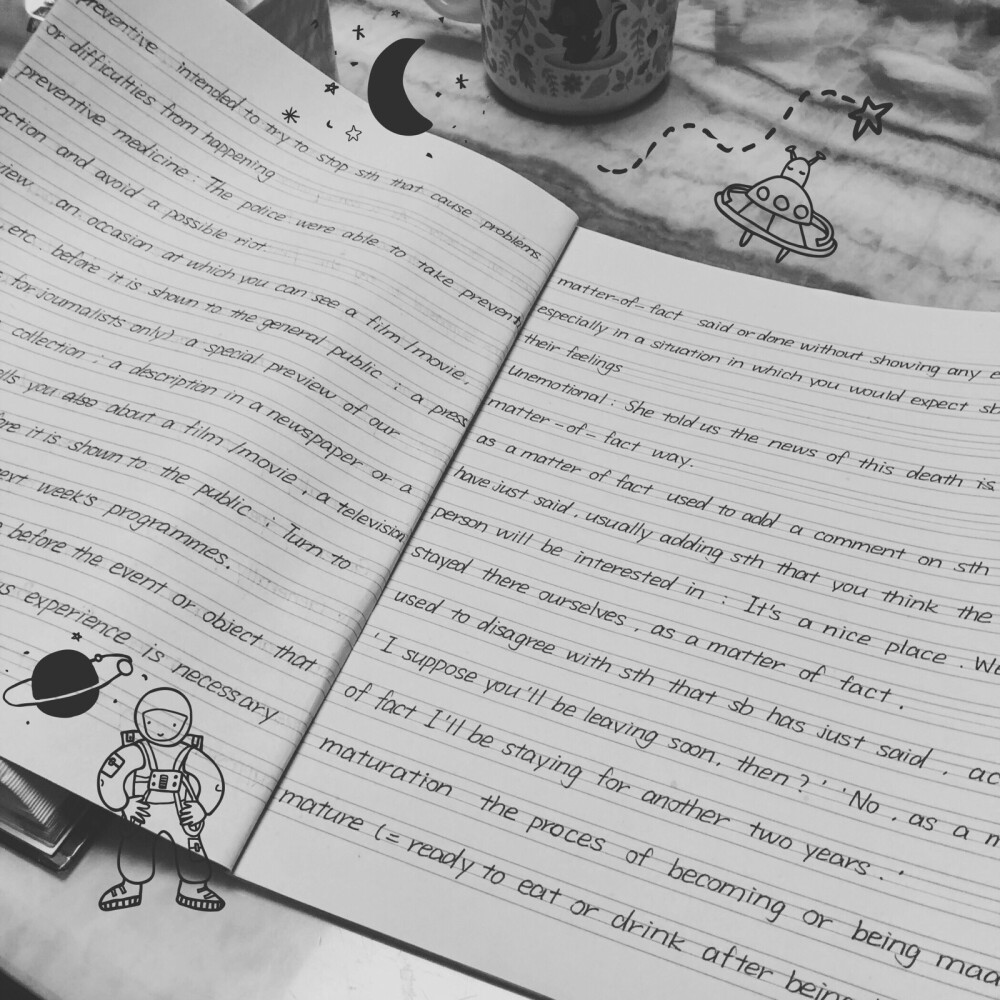 preventive intended to try to stop sth that cause problems
or difficulties from happening
preventive medicine : The police were able to take
action and avoid a possible riot
an occasion at which you can see a film / movie,
etc. before it is shown to the general public : a press
for journalists only) a special preview of our
collection ; a description in a newspaper or a
you a̶l̶s̶o̶ about a film / movie , a television
it is shown to the public : Turn to
week's programmes.
before the event or object that
experience is necessary
matter-of-fact said or done without showing any
especially in a situation in which you would expect
their feelings
Unemotional : She told us the news of this death is
matter-of-fact way.
as a matter of fact used to add a comment on sth
have just said , usually adding sth that you think the
person will be interested in : It's a nice place . We
stayed there ourselves , as a matter of fact .
used to disagree with sth that sb has just said ,
'I suppose you'll be leaving soon, then ?' 'No , as a
of fact I'll be staying for another two years . '
maturation the proces of becoming or being
mature (= ready to eat or drink after